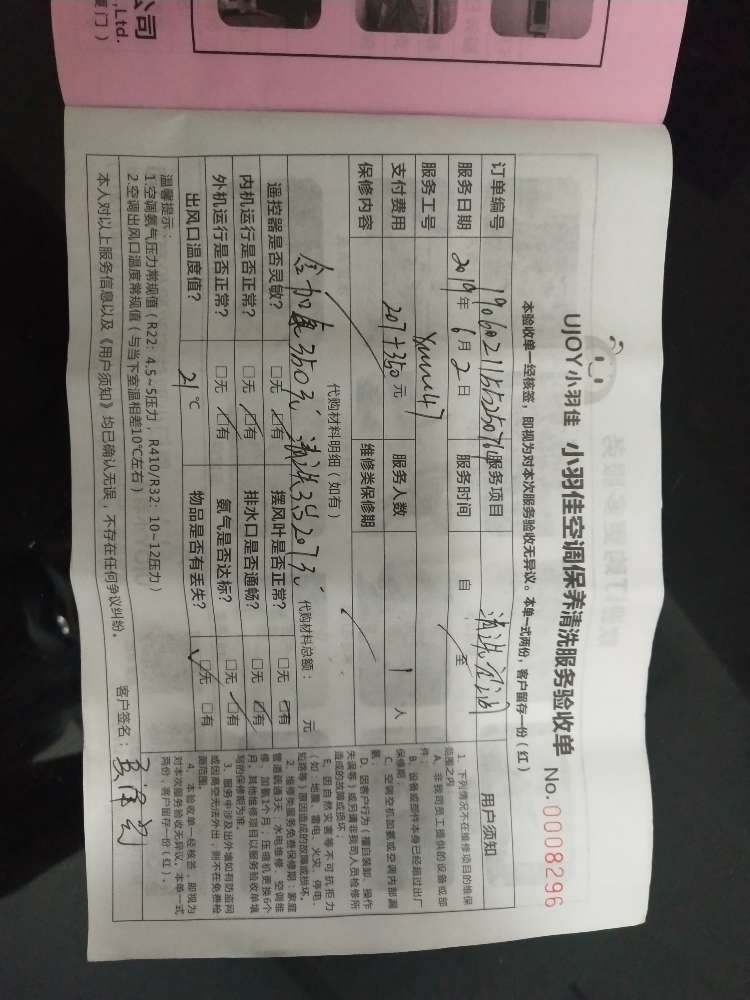 公司
.,Ltd.
厦门）
UJOY小羽佳 小羽佳空调保养清洗服务验收单 No.0008296
本验收单一经核签，即视为对本次服务验收无异议。本单一式两份，客户留存一份（红）
订单编号 服务项目
服务日期 2019年6月2日 服务时间 自 至
服务工号 Xmn47
支付费用 207+350元 服务人数 1人
保修内容 维修类保修期
代购材料明细（如有）
代购材料总额： 元
遥控器是否灵敏？ □无 □有 摆风叶是否正常？ □无 □有
内机运行是否正常？ □无 □有 排水口是否通畅？ □无 □有
外机运行是否正常？ □无 □有 氨气是否达标？ □无 □有
出风口温度值？ 21℃ 物品是否有丢失？ □无 □有
温馨提示：
1.空调氨气压力常规值（R22：4.5~5压力，R410/R32：10~12压力）
2.空调出风口温度常规值（与当下室温相差10℃左右）
本人对以上服务信息以及《用户须知》均已确认无误，不存在任何争议纠纷。 客户签名：
用户须知
1、下列情况不在维修项目的维保
范围之内：
A、非我司员工提供的设备或部
件；
B、设备或部件本身已经超过出厂
保修期；
C、空调空机加氨或空调内部漏
氨；
D、因客户行为（擅自装卸、操作
失误等）或另请非我司人员检修所
造成的故障或损坏；
E、因自然灾害等不可抗拒力
（如：地震、雷电、火灾、停电、
短路等）原因造成的故障或损坏。
2、维修类服务免费保修期：家庭
管道疏通3天，水电维修、空调维
修、加氨1个月，压缩机更换6个
月。其他维修项目以服务验收单填
写的保修期为准。
3、服务中涉及出外墙如有防盗网
或因高空无法外出，则不在免费检
测范围。
4、本验收单一经核签，即视为
对本次服务验收无异议，本单一式
两份，客户留存一份（红）。